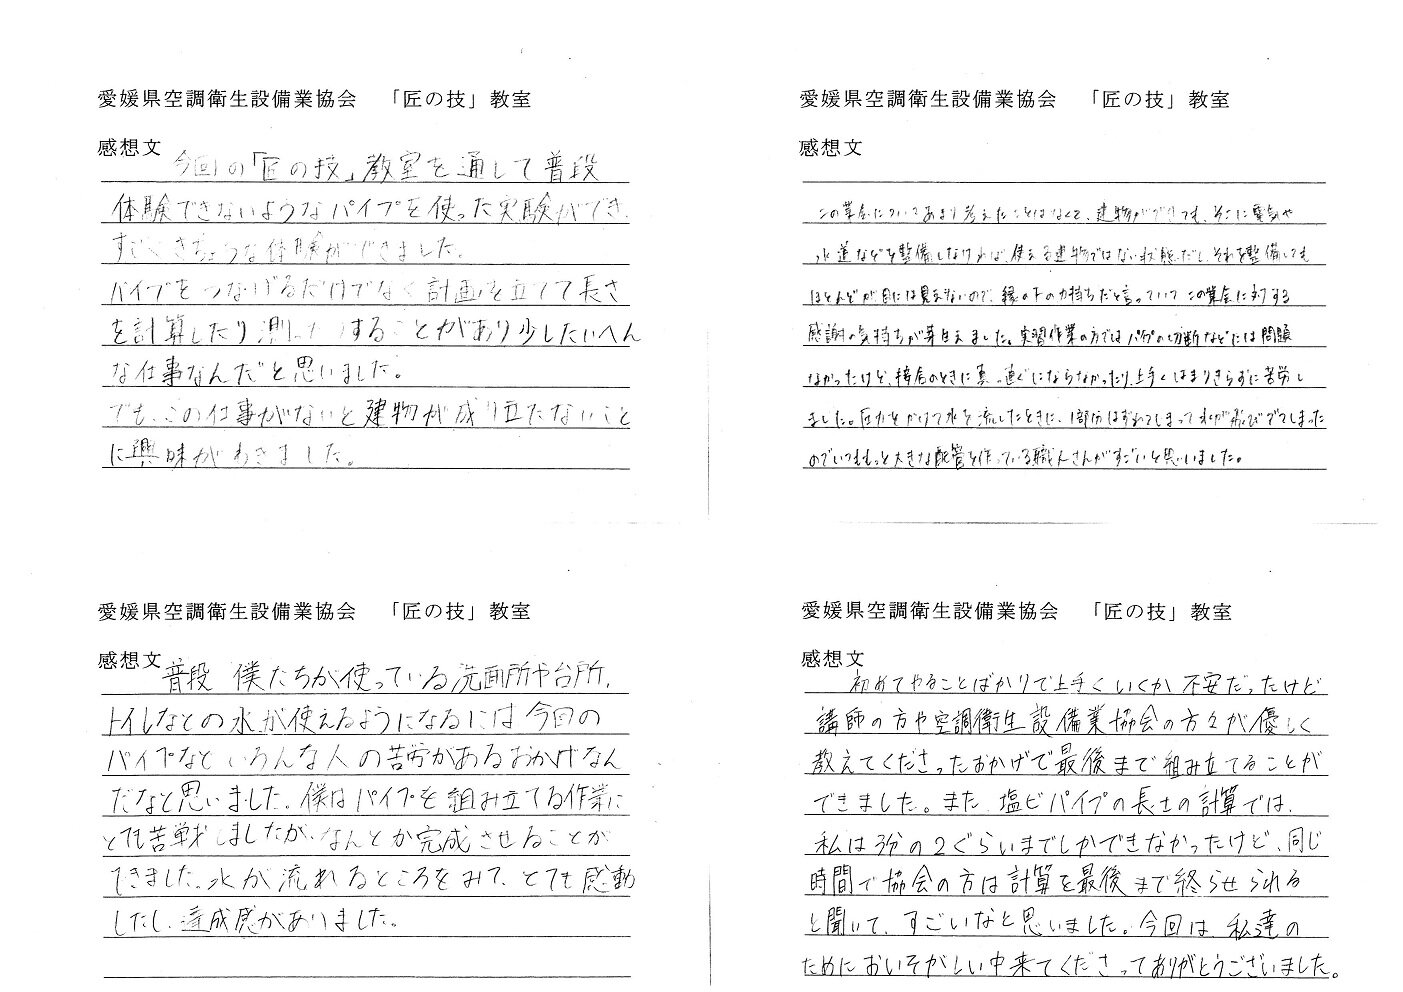 愛媛県空調衛生設備業協会　「匠の技」教室
感想文
今回の「匠の技」教室を通して普段
体験できないようなパイプを使った実験ができ、
すごくきちょうな体験ができました。
パイプをつなげるだけでなく計画を立てて長さ
を計算したり測ったりすることがあり少したいへん
な仕事なんだと思いました。
でも、この仕事がないと建物が成り立たないこと
に興味がわきました。
愛媛県空調衛生設備業協会　「匠の技」教室
感想文
この業会についてあまり考えたことはなくて、建物ができても、そこに電気や
水道などを整備しなければ、使える建物ではない状態だし、それを整備しても
ほとんどが目には見えないので、縁の下の力持ちだと言っていて この業会に対する
感謝の気持ちが芽生えました。実習作業の方ではパイプの切断などには問題
なかったけど、接合のときに真っ直ぐにならなかったり、上手くはまりきらずに苦労し
ました。圧力をかけて水を流したときに、1部分はずれてしまって水が飛びでてしまった
のでいつももっと大きな配管を作っている職人さんがすごいと思いました。
愛媛県空調衛生設備業協会　「匠の技」教室
感想文
普段 僕たちが使っている洗面所や台所、
トイレなどの水が使えるようになるには今回の
パイプなどいろんな人の苦労があるおかげなん
だなと思いました。僕はパイプを組み立てる作業に
とても苦戦しましたが、なんとか完成させることが
できました。水が流れるところをみて、とても感動
したし、達成感がありました。
愛媛県空調衛生設備業協会　「匠の技」教室
感想文
初めてやることばかりで上手くいくか不安だったけど
講師の方や空調衛生設備業協会の方々が優しく
教えてくださったおかげで最後まで組み立てることが
できました。また、塩ビパイプの長さの計算では、
私は3分の2ぐらいまでしかできなかったけど、同じ
時間で協会の方は計算を最後まで終らせられる
と聞いて、すごいなと思いました。今回は、私達の
ためにおいそがしい中来てくださってありがとうございました。